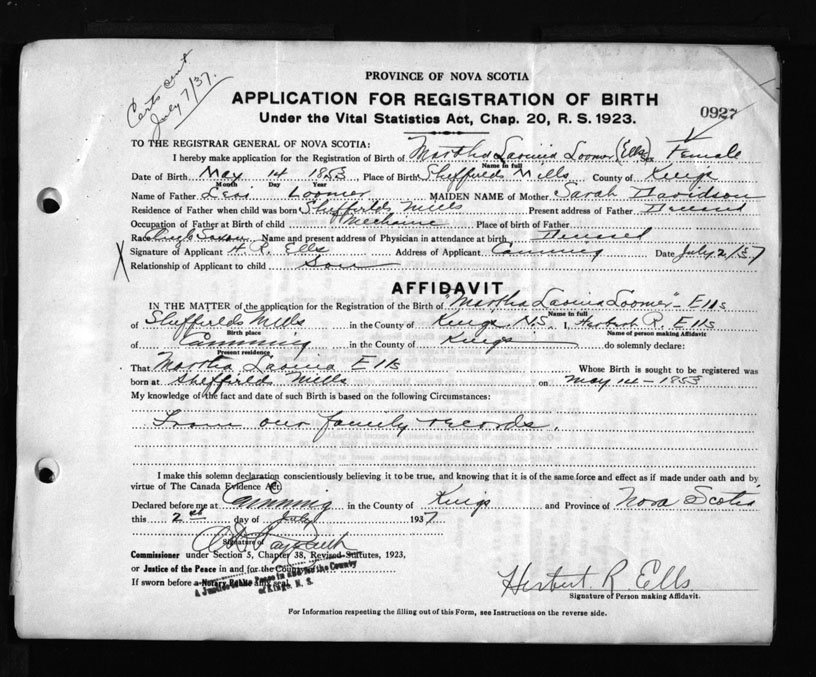 Certs sent
July 7/37.
PROVINCE OF NOVA SCOTIA
APPLICATION FOR REGISTRATION OF BIRTH
0927
Under the Vital Statistics Act, Chap. 20, R. S. 1923.
TO THE REGISTRAR GENERAL OF NOVA SCOTIA:
I hereby make application for the Registration of Birth of Martha Lavinia Loomer (Ells) Sex Female
Name in full
Date of Birth May 14 1853 Place of Birth Sheffields Mills County of Kings
Month Day Year
Name of Father Levi Loomer MAIDEN NAME of Mother Sarah Davidson
Residence of Father when child was born Sheffields Mills Present address of Father Deceased
Occupation of Father at Birth of child Mechanic Place of Birth of Father
Race Anglo Saxon Name and present address of Physician in attendance at birth Deceased
X Signature of Applicant H. R. Ells Address of Applicant Canning Date July 2/37
Relationship of Applicant to child Son
AFFIDAVIT
IN THE MATTER of the application for the Registration of the Birth of "Martha Lavinia Loomer" - Ells
Name in full
of Sheffields Mills in the County of Kings N.S. I, Herbert R. Ells
Birth place Name of person making Affidavit
of Canning in the County of Kings do solemnly declare:
Present residence
That Martha Lavinia Ells Whose Birth is sought to be registered was
born at Sheffields Mills on May 14 - 1853
My knowledge of the fact and date of such Birth is based on the following Circumstances:
From our family records.
I make this solemn declaration conscientiously believing it to be true, and knowing that it is of the same force and effect as if made under oath and by
virtue of The Canada Evidence Act.
Declared before me at Canning in the County of Kings and Province of Nova Scotia
this 2nd day of July 1937
Signature of
Commissioner under Section 5, Chapter 38, Revised Statutes, 1923,
or Justice of the Peace in and for the County
If sworn before a Notary Public affix seal
A Justice of the Peace in and for the County
of Kings, N. S.
Herbert R Ells
Signature of Person making Affidavit.
For Information respecting the filling out of this Form, see Instructions on the reverse side.